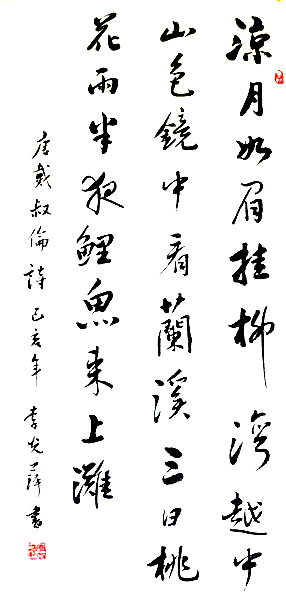 涼月如眉挂柳灣越中
山色鏡中看蘭溪三日桃
花雨半夜鯉魚來上灘
唐戴叔倫詩己亥年李光辉書